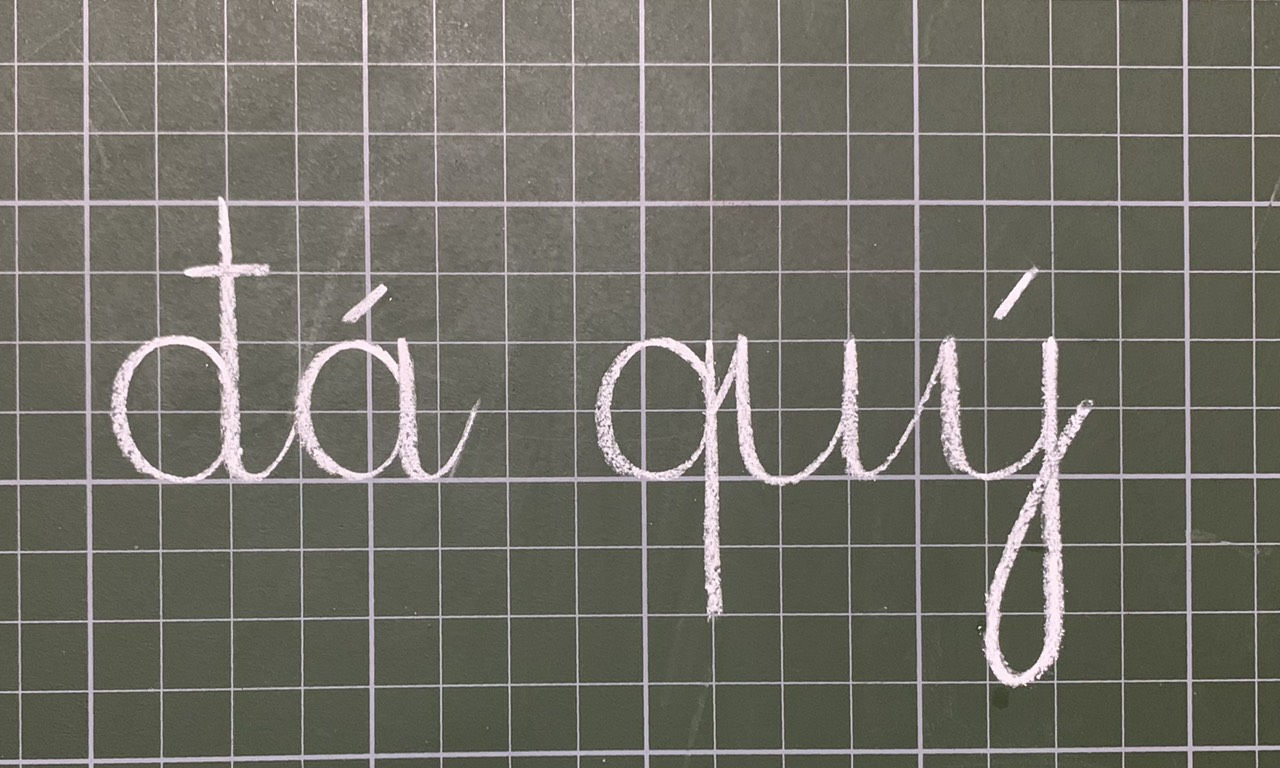 đá quý